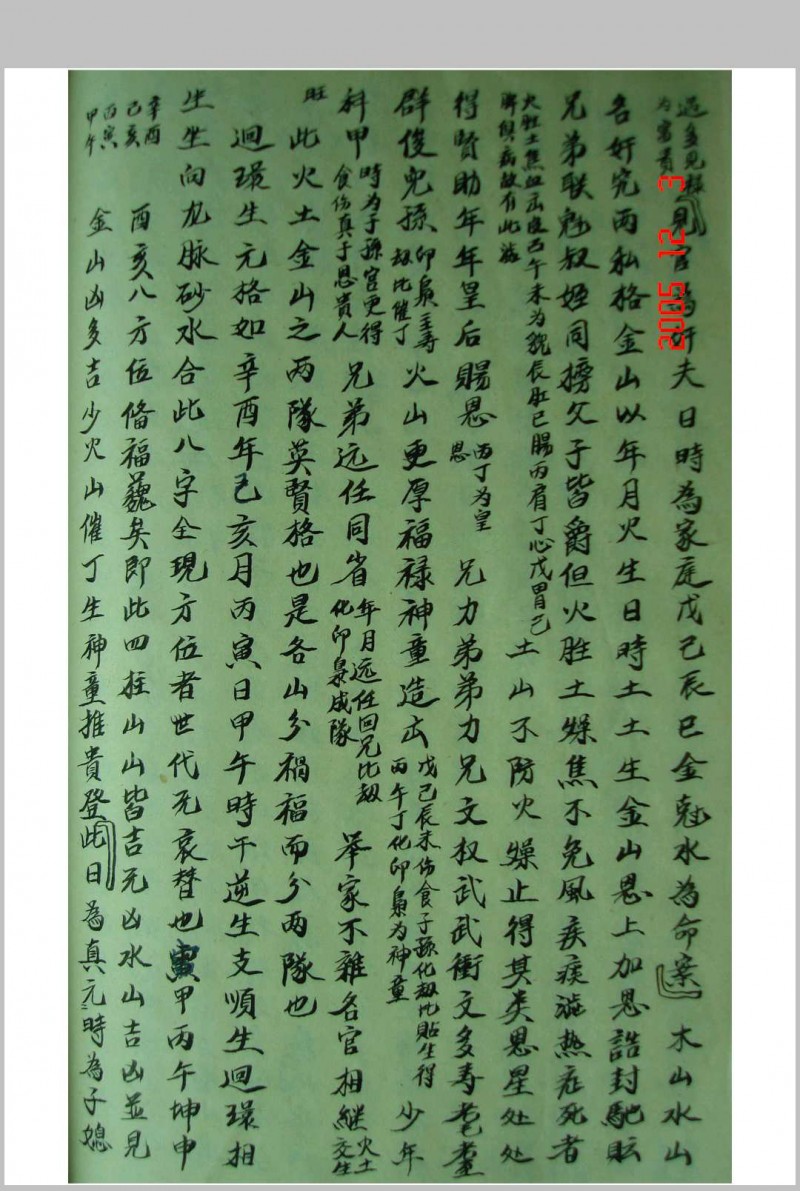 過多見殺為富貴見官為奸夫日時為家庭戊己辰巳金尅水為命案木山水山
各奸究两私格金山以年月火生日時土土生金山恩上加恩誥封馳
兄弟联魁叔姪同搒父子皆爵但火胜土燥焦不免風疾痰症死者
火胜土焦血午未为辰肛巳腸丙肩丁心戊胃己脾俱病故有此 土山不防火燥止得其美恩星处处
得賢助年年皇后賜恩丙丁为皇恩兄力弟弟力兄文权武武衝文多寿耄耋
群俊児孫印枭主寿劫比催丁火山更厚福禄神童造出戊己辰未伤食子孫化劫比貼生得丙午丁化印枭为神童少年
科甲時为子孫宫更得食伤真子恩貴人兄弟远任同省年月远任回兄比劫化印枭成隊举家不雜各官相継火土交生
旺此火土金山之两隊英賢格也是各山分禍福而分两隊也
迴環生元格如辛酉年己亥月丙寅日甲午時干逆生支順生迴環相
生坐向龙脉砂水合此八字全現方位者世代无哀替也寅甲丙午坤申
辛酉己亥丙寅甲午
酉亥八方位俻福矣即此四拄山山皆吉无凶水山吉凶並見
金山凶多吉少火山催丁生神童推貴登此日為真元時為子媳
2005 12 3